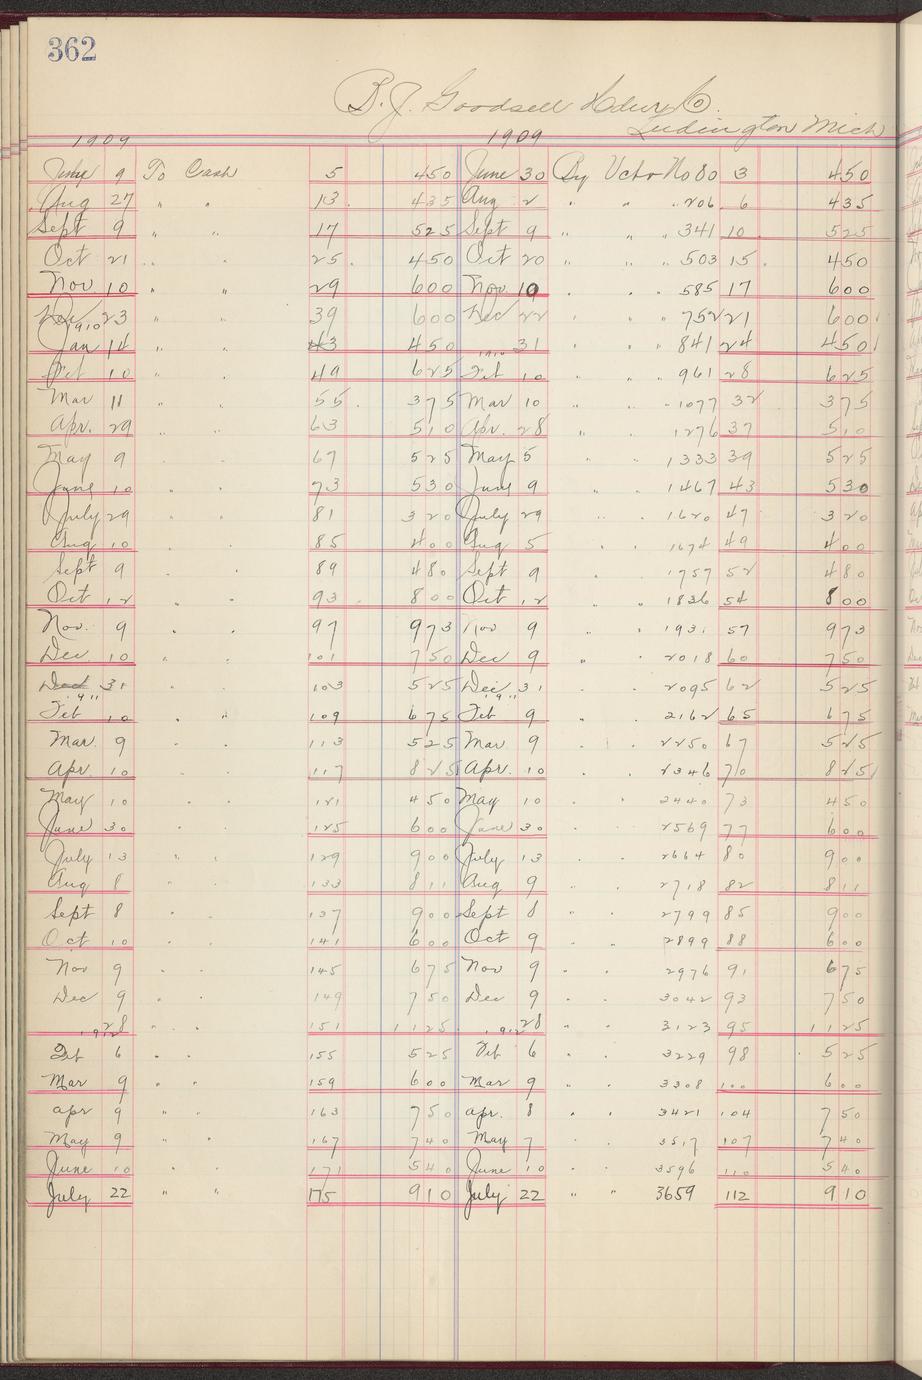 362
B. J. Goodsell Hdwr Co.
Ludington Mich
1909 1909
July 9 To Cash 5 450 June 30 By Vchr No 80 3 450
Aug 27 " " 13 435 Aug 2 " " " 206 6 435
Sept 9 " " 17 525 Sept 9 " " " 341 10 525
Oct 21 " " 25 450 Oct 20 " " " 503 15 450
Nov. 10 " " 29 600 Nov. 10 " " " 585 17 600
Dec 23 39 600 Dec 22 " " " 752 21 600
1910
Jan 14 " " 43 450 31 " " " 841 24 450
1910
Feb 10 " " 49 625 Feb 10 " " " 961 28 625
Mar 11 " " 55 375 Mar 10 " " " 1077 32 375
Apr. 29 " " 63 510 Apr. 28 " " 1276 37 510
May 9 " " 67 525 May 5 " " 1333 39 525
June 10 " " 73 530 June 9 " " 1467 43 530
July 29 " " 81 320 July 29 " " 1620 47 320
Aug 10 " " 85 400 Aug 5 " " 1674 49 400
Sept 9 " " 89 480 Sept 9 " " 1757 52 480
Oct 12 " " 93 800 Oct 12 " " 1836 54 800
Nov. 9 " " 97 973 Nov 9 " " 1931 57 973
Dec. 10 " " 101 750 Dec 9 " " 2018 60 750
Dec 31 " " 103 525 Dec 31 " " 2095 62 525
1911 1911
Feb 10 " " 109 675 Feb 9 " " 2162 65 675
Mar. 9 " " 113 525 Mar. 9 " " 2250 67 525
Apr. 10 " " 117 825 Apr. 10 " " 2346 70 825
May 10 " " 121 450 May 10 " " 2440 73 450
June 30 " " 125 600 June 30 " " 2569 77 600
July 13 " " 129 900 July 13 " " 2664 80 900
Aug 8 " " 133 811 Aug 9 " " 2718 82 811
Sept 8 " " 137 900 Sept 8 " " 2799 85 900
Oct 10 " " 141 600 Oct 9 " " 2899 88 600
Nov 9 " " 145 675 Nov 9 " " 2976 91 675
Dec 9 " " 149 750 Dec 9 " " 3042 93 750
28 " " 151 1125 28 " " 3123 95 1125
1912 1912
Feb 6 " " 155 525 Feb 6 " " 3229 98 525
Mar 9 " " 159 600 Mar 9 " " 3308 100 600
apr 9 " " 163 750 apr. 8 " " 3421 104 750
May 9 " " 167 740 May 7 " " 3517 107 740
June 10 " " 171 540 June 10 " " 3596 110 540
July 22 " " 175 910 July 22 " " 3659 112 910